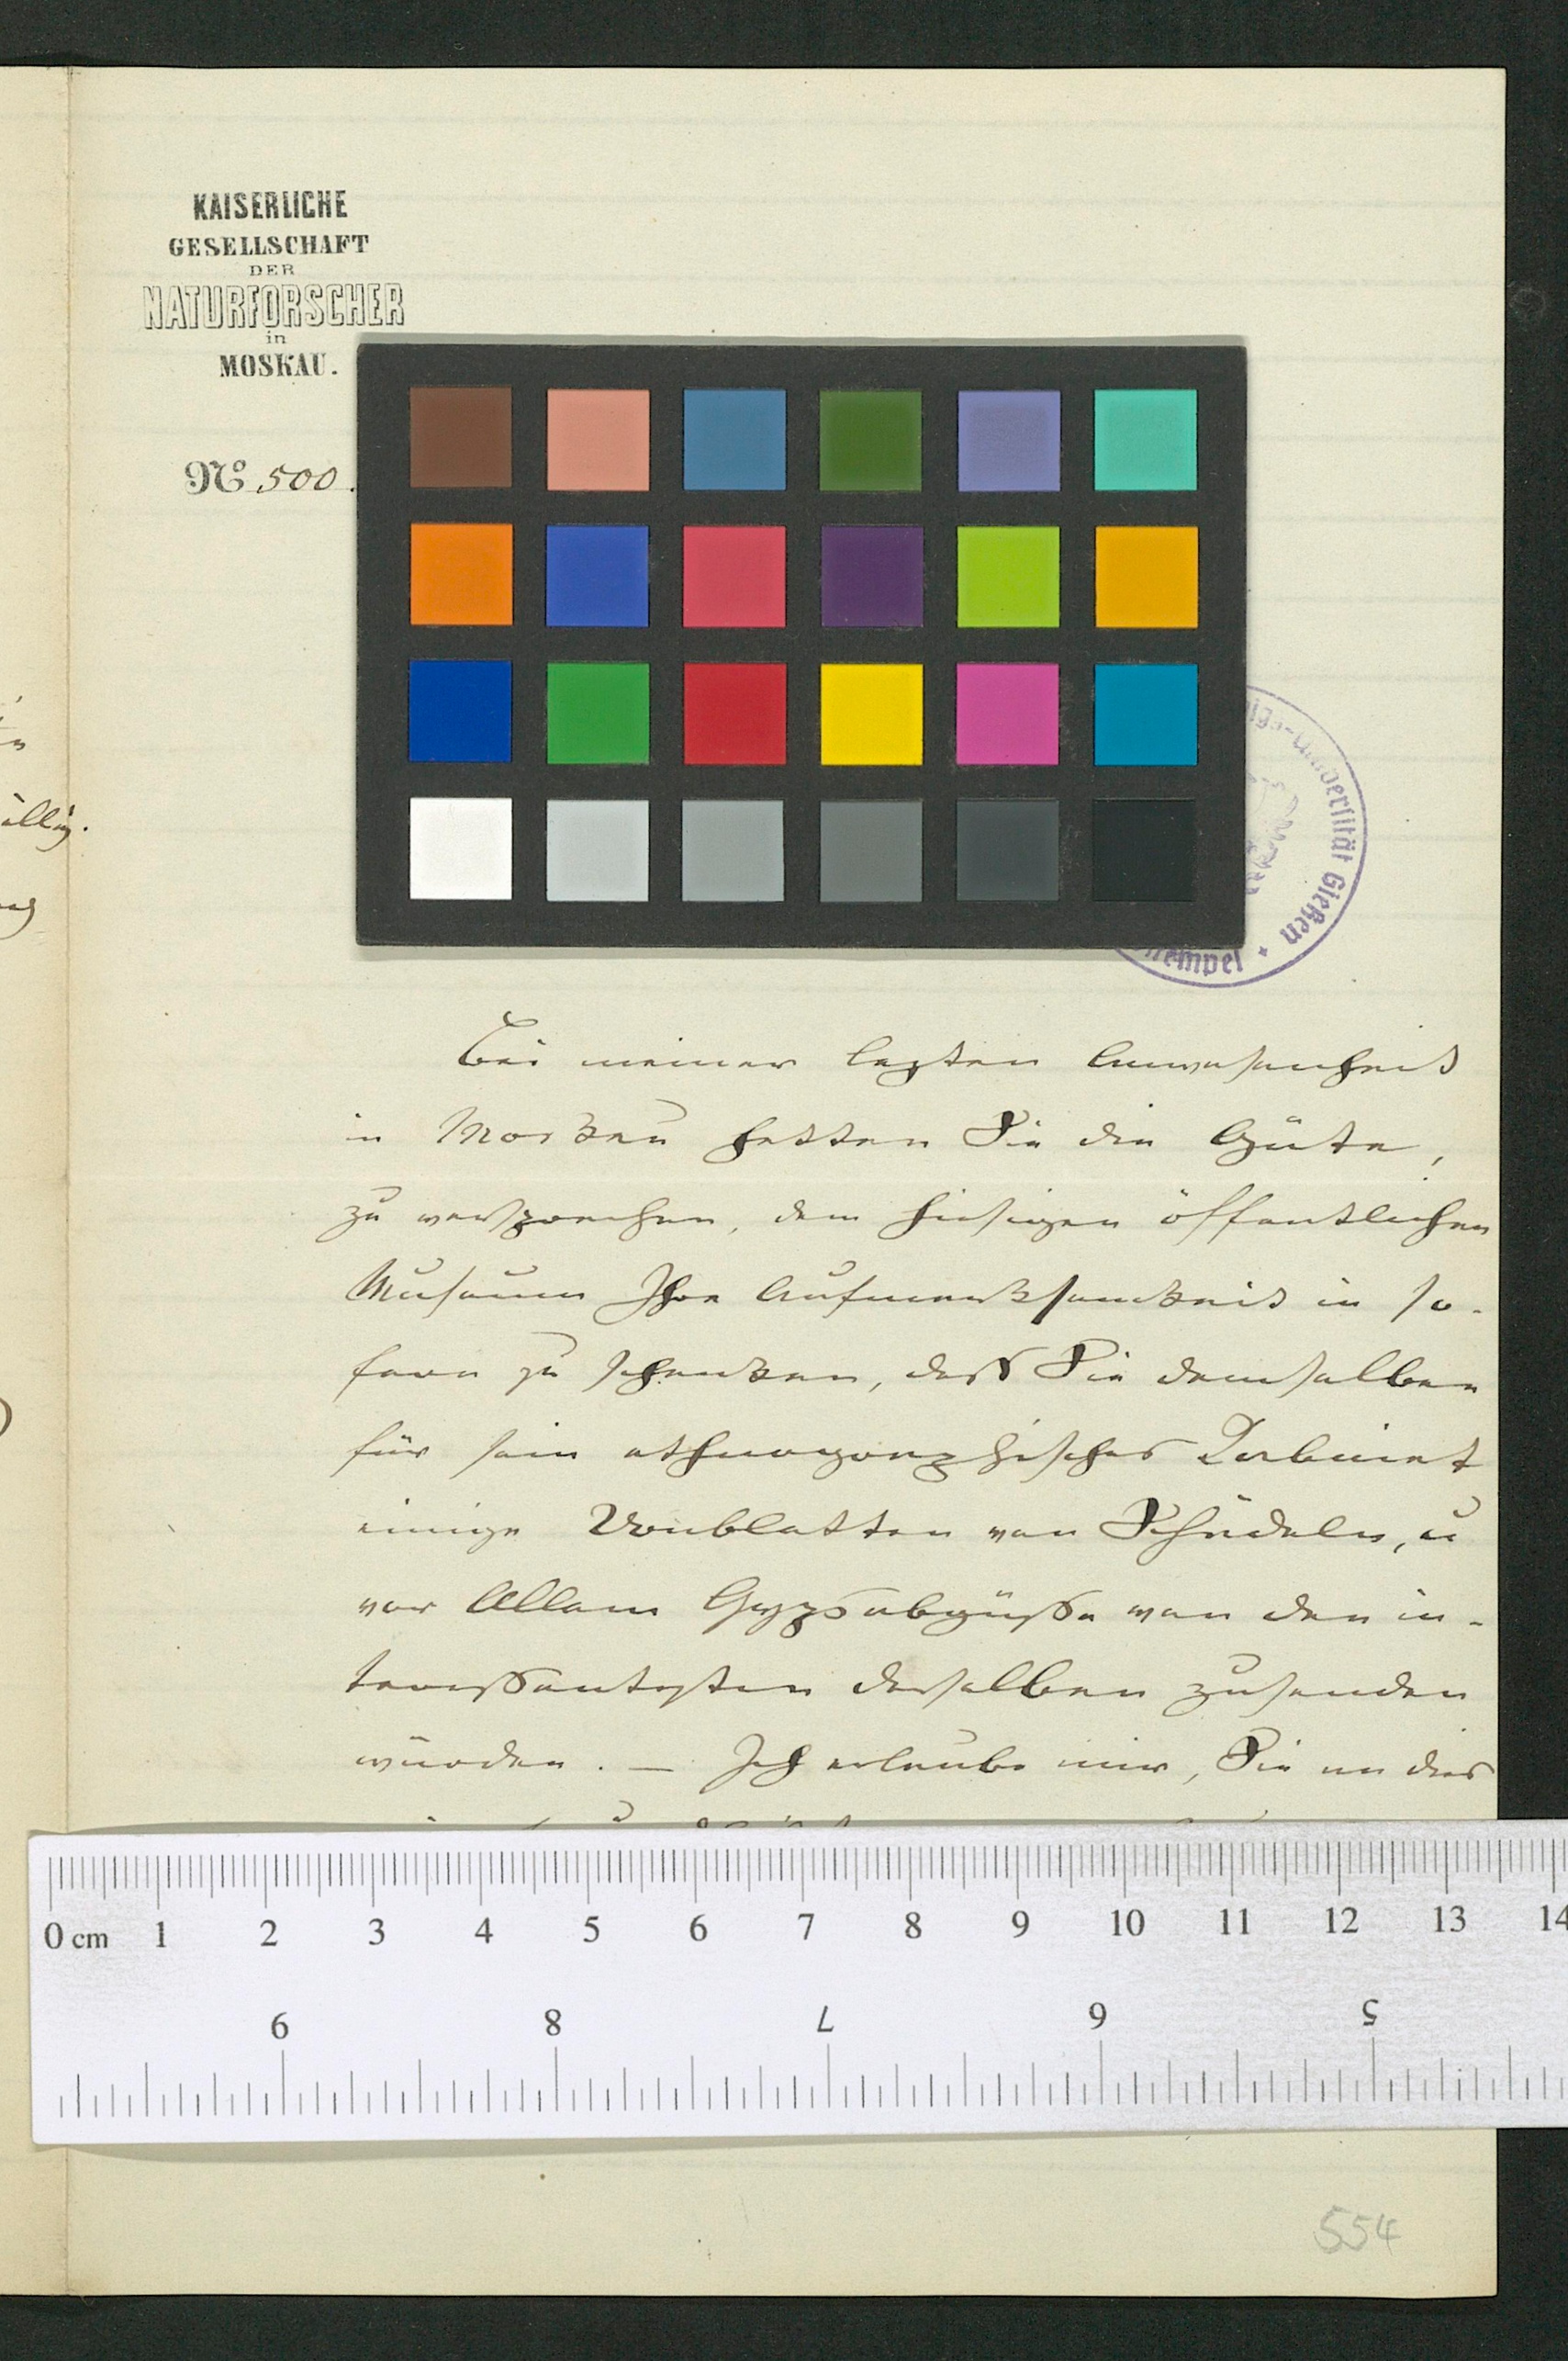 KAISERLICHE
GESELLSCHAFT
DER
NATURFORSCHER
in
MOSKAU.
No 500.
Universität Gießen
Bei meiner letzten Anwesenheit
in Moskau hatten Sie die Güte,
zu versprechen, dem hiesigen öffentlichen
Museum Ihre Aufmerksamkeit in so-
fern zu schenken, daß Sie demselben
für sein ethnographisches Cabinet
einige Doubletten von Schädeln, u
vor Allem Gypsabgüße von den in-
teressantesten derselben zusenden
würden. — Ich erlaube mir, Sie an dies
0 cm 1 2 3 4 5 6 7 8 9 10 11 12 13 14
9 8 7 6 5
554